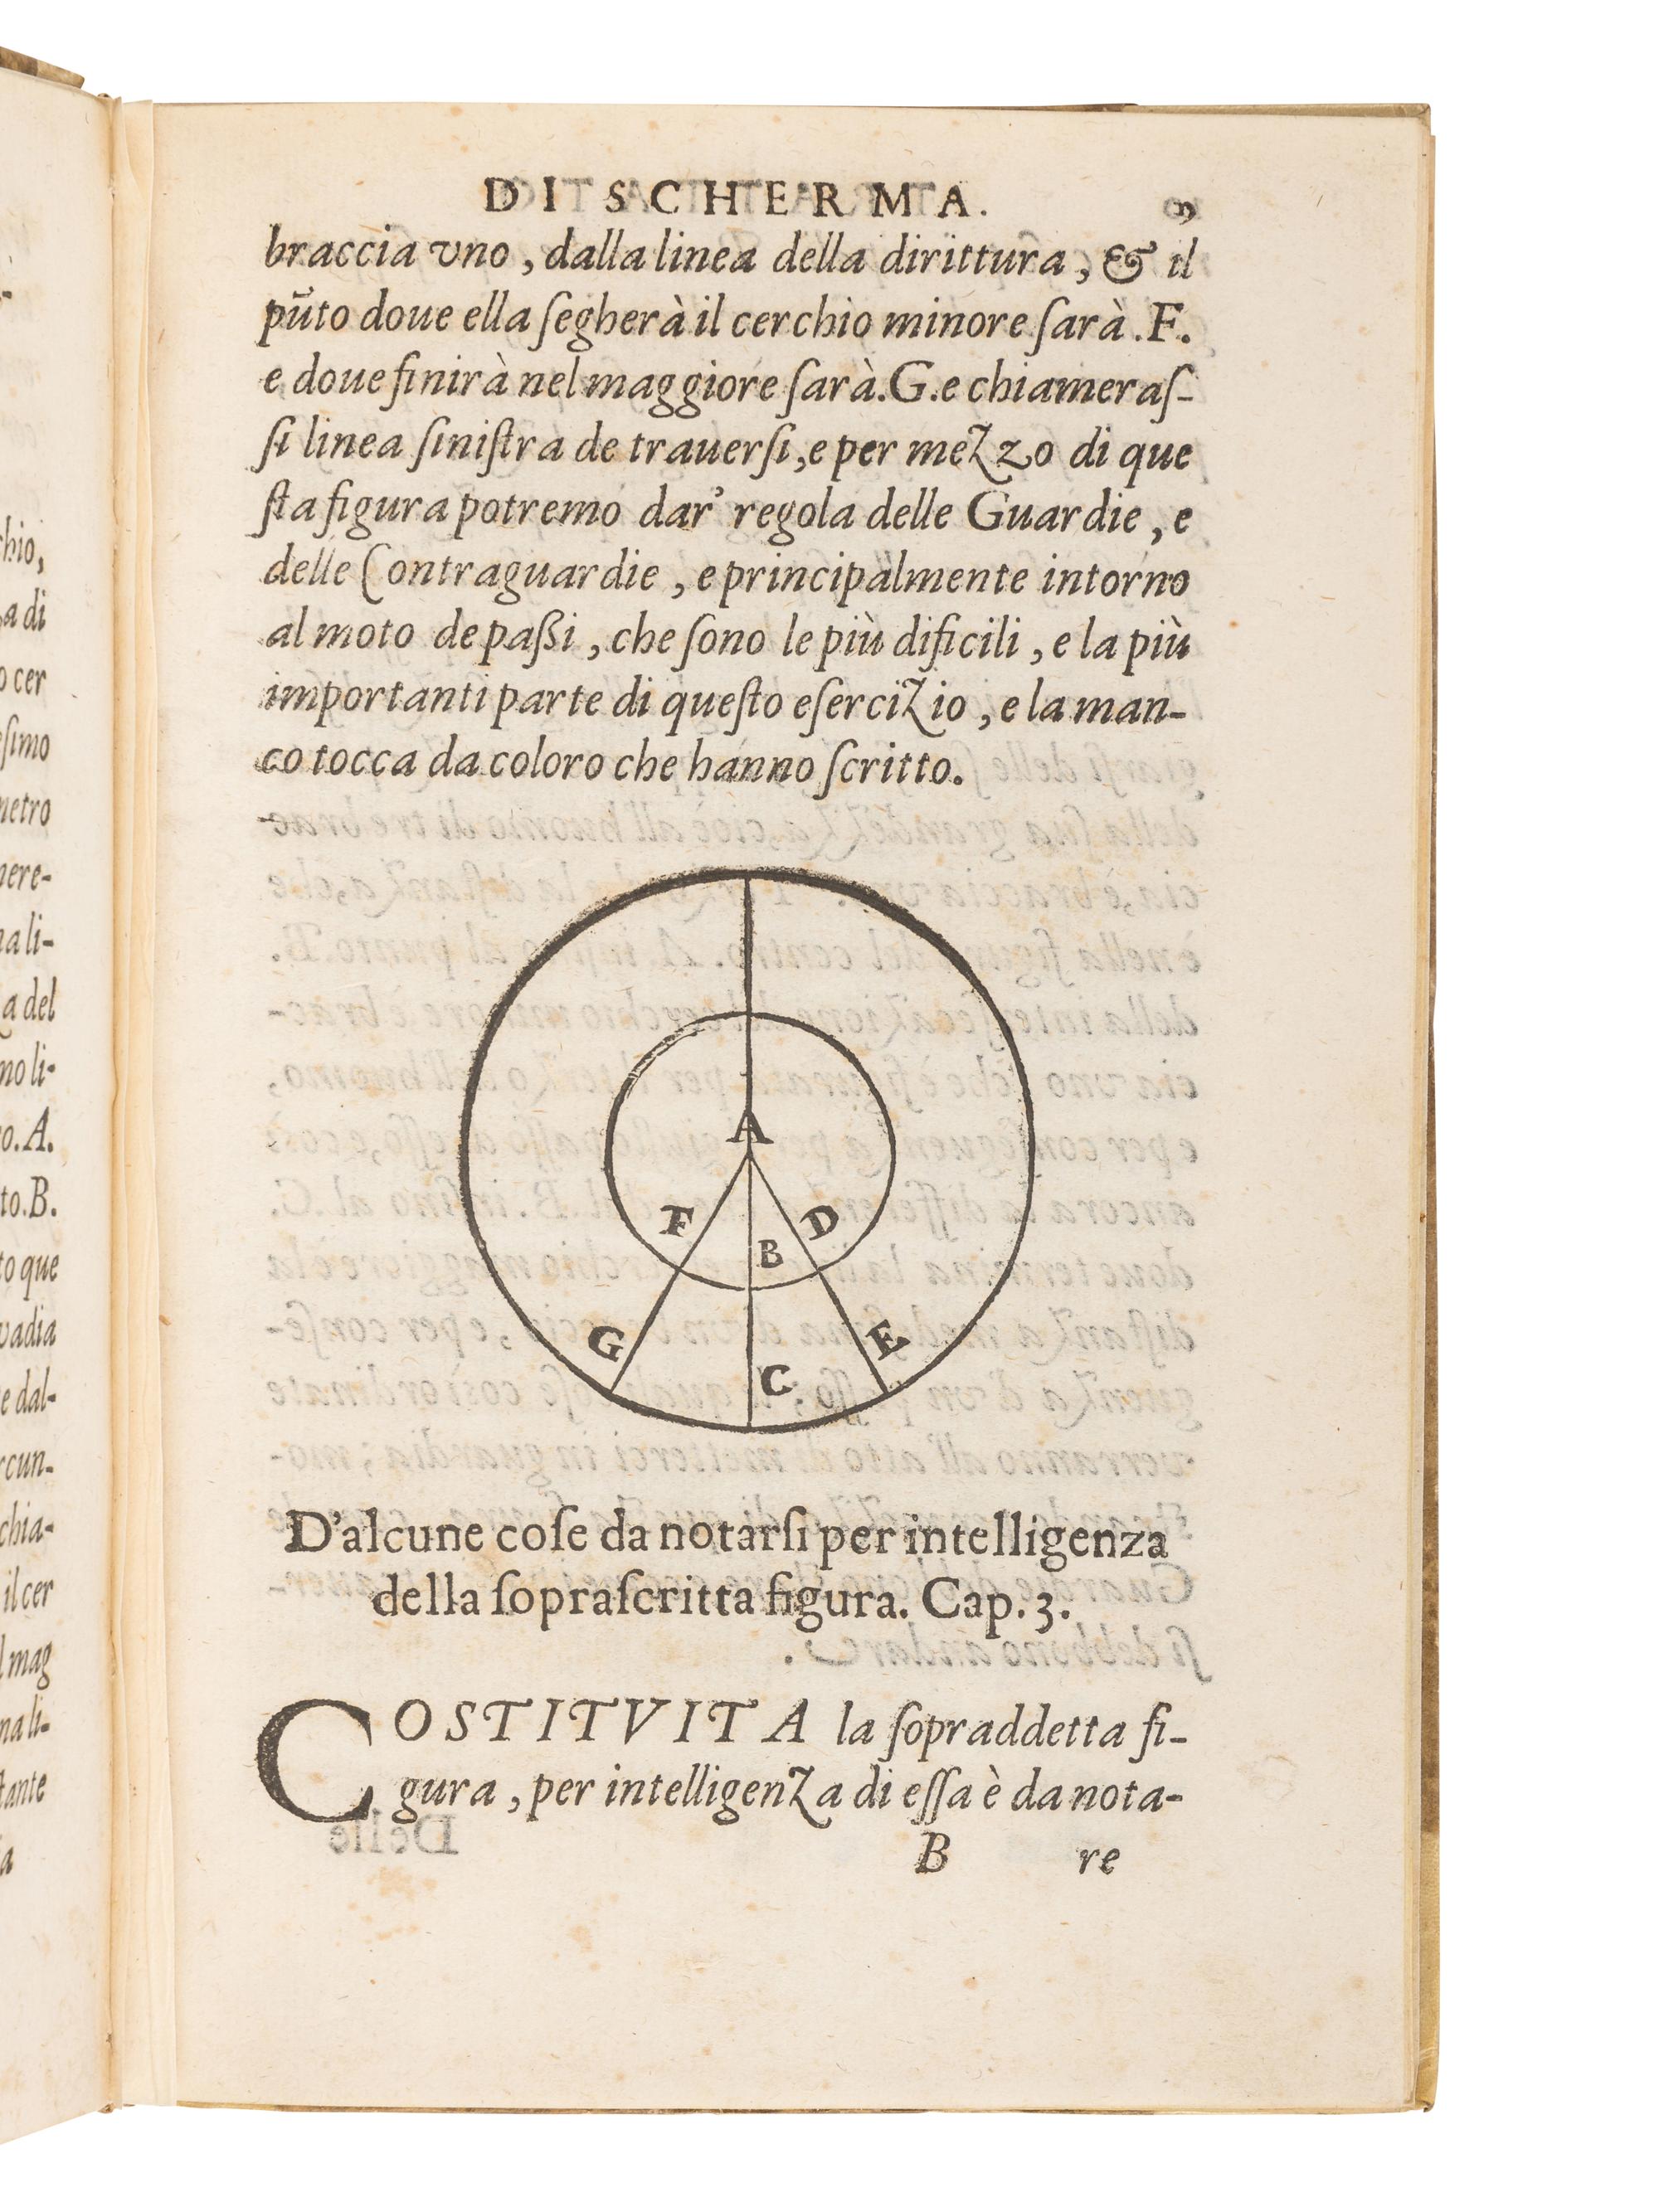 DI SCHERMA. 9
braccia vno, dalla linea della dirittura, & il
pūto doue ella ſegherà il cerchio minore ſarà .F.
e doue finirà nel maggiore ſarà.G.e chiameraſ-
ſi linea ſiniſtra de trauerſi,e per mezzo di que
ſta figura potremo dar' regola delle Guardie, e
delle Contraguardie, e principalmente intorno
al moto de paßi, che ſono le più dificili, e la più
importanti parte di queſto eſercizio, e la man-
co tocca da coloro che hanno ſcritto.
A
F
D
B
G
E
C
D'alcune coſe da notarſi per intelligenza
della ſopraſcritta figura. Cap. 3.
COSTITVITA la ſopraddetta fi-
gura, per intelligenza di eſſa è da nota-
B re
hio,
a di
o cer
eſimo
metro
nere-
na li-
a del
no li-
o. A.
to. B.
to que
vadia
e dal-
rcun-
chia-
il cer
l mag
na li-
ſtante
a